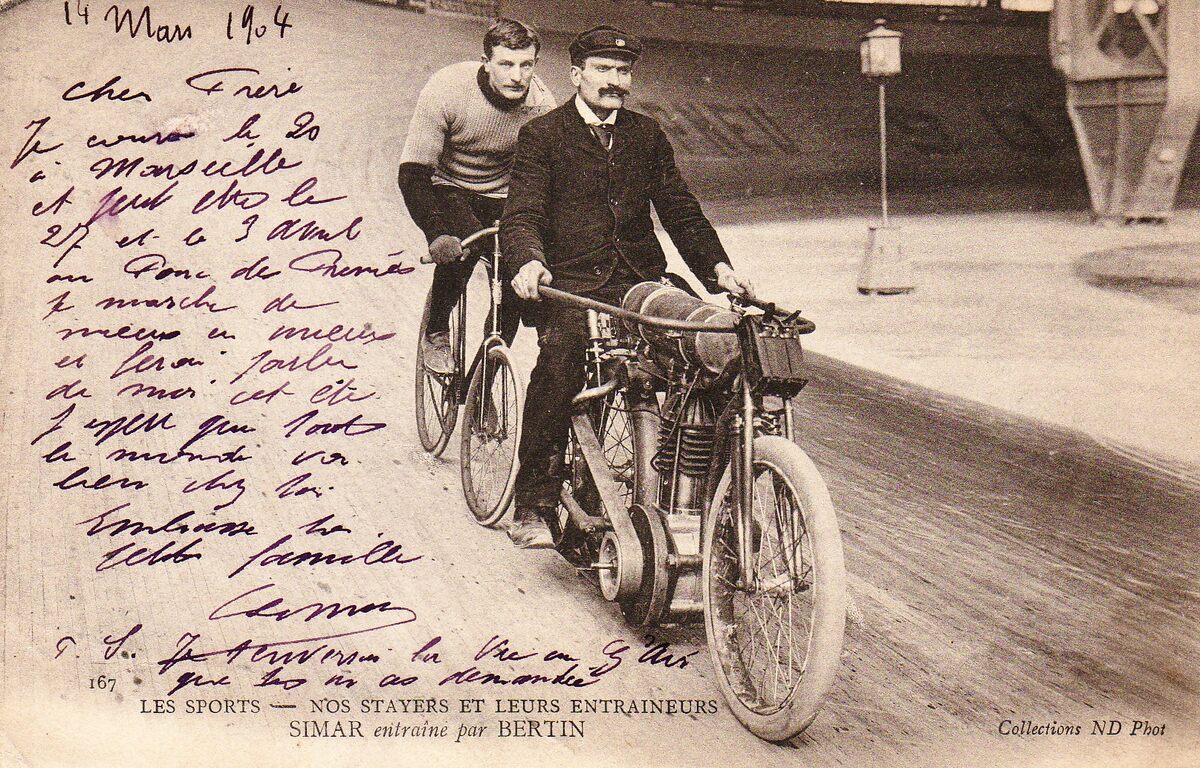 14 Mars 1904
Cher Frère
Je cours le 20
à Marseille
et peut etre le
27 et le 3 Avril
au Parc des Princes
je marche de
mieux en mieux
et ferai parler
de moi cet été
J'espère que tout
le monde va
bien chez toi
Embrasse ta
petite famille
P. S. Je t'enverrai la Vie au Gd Air
que tu m'as demandée
167
LES SPORTS — NOS STAYERS ET LEURS ENTRAINEURS
SIMAR entraîné par BERTIN
Collections ND Phot